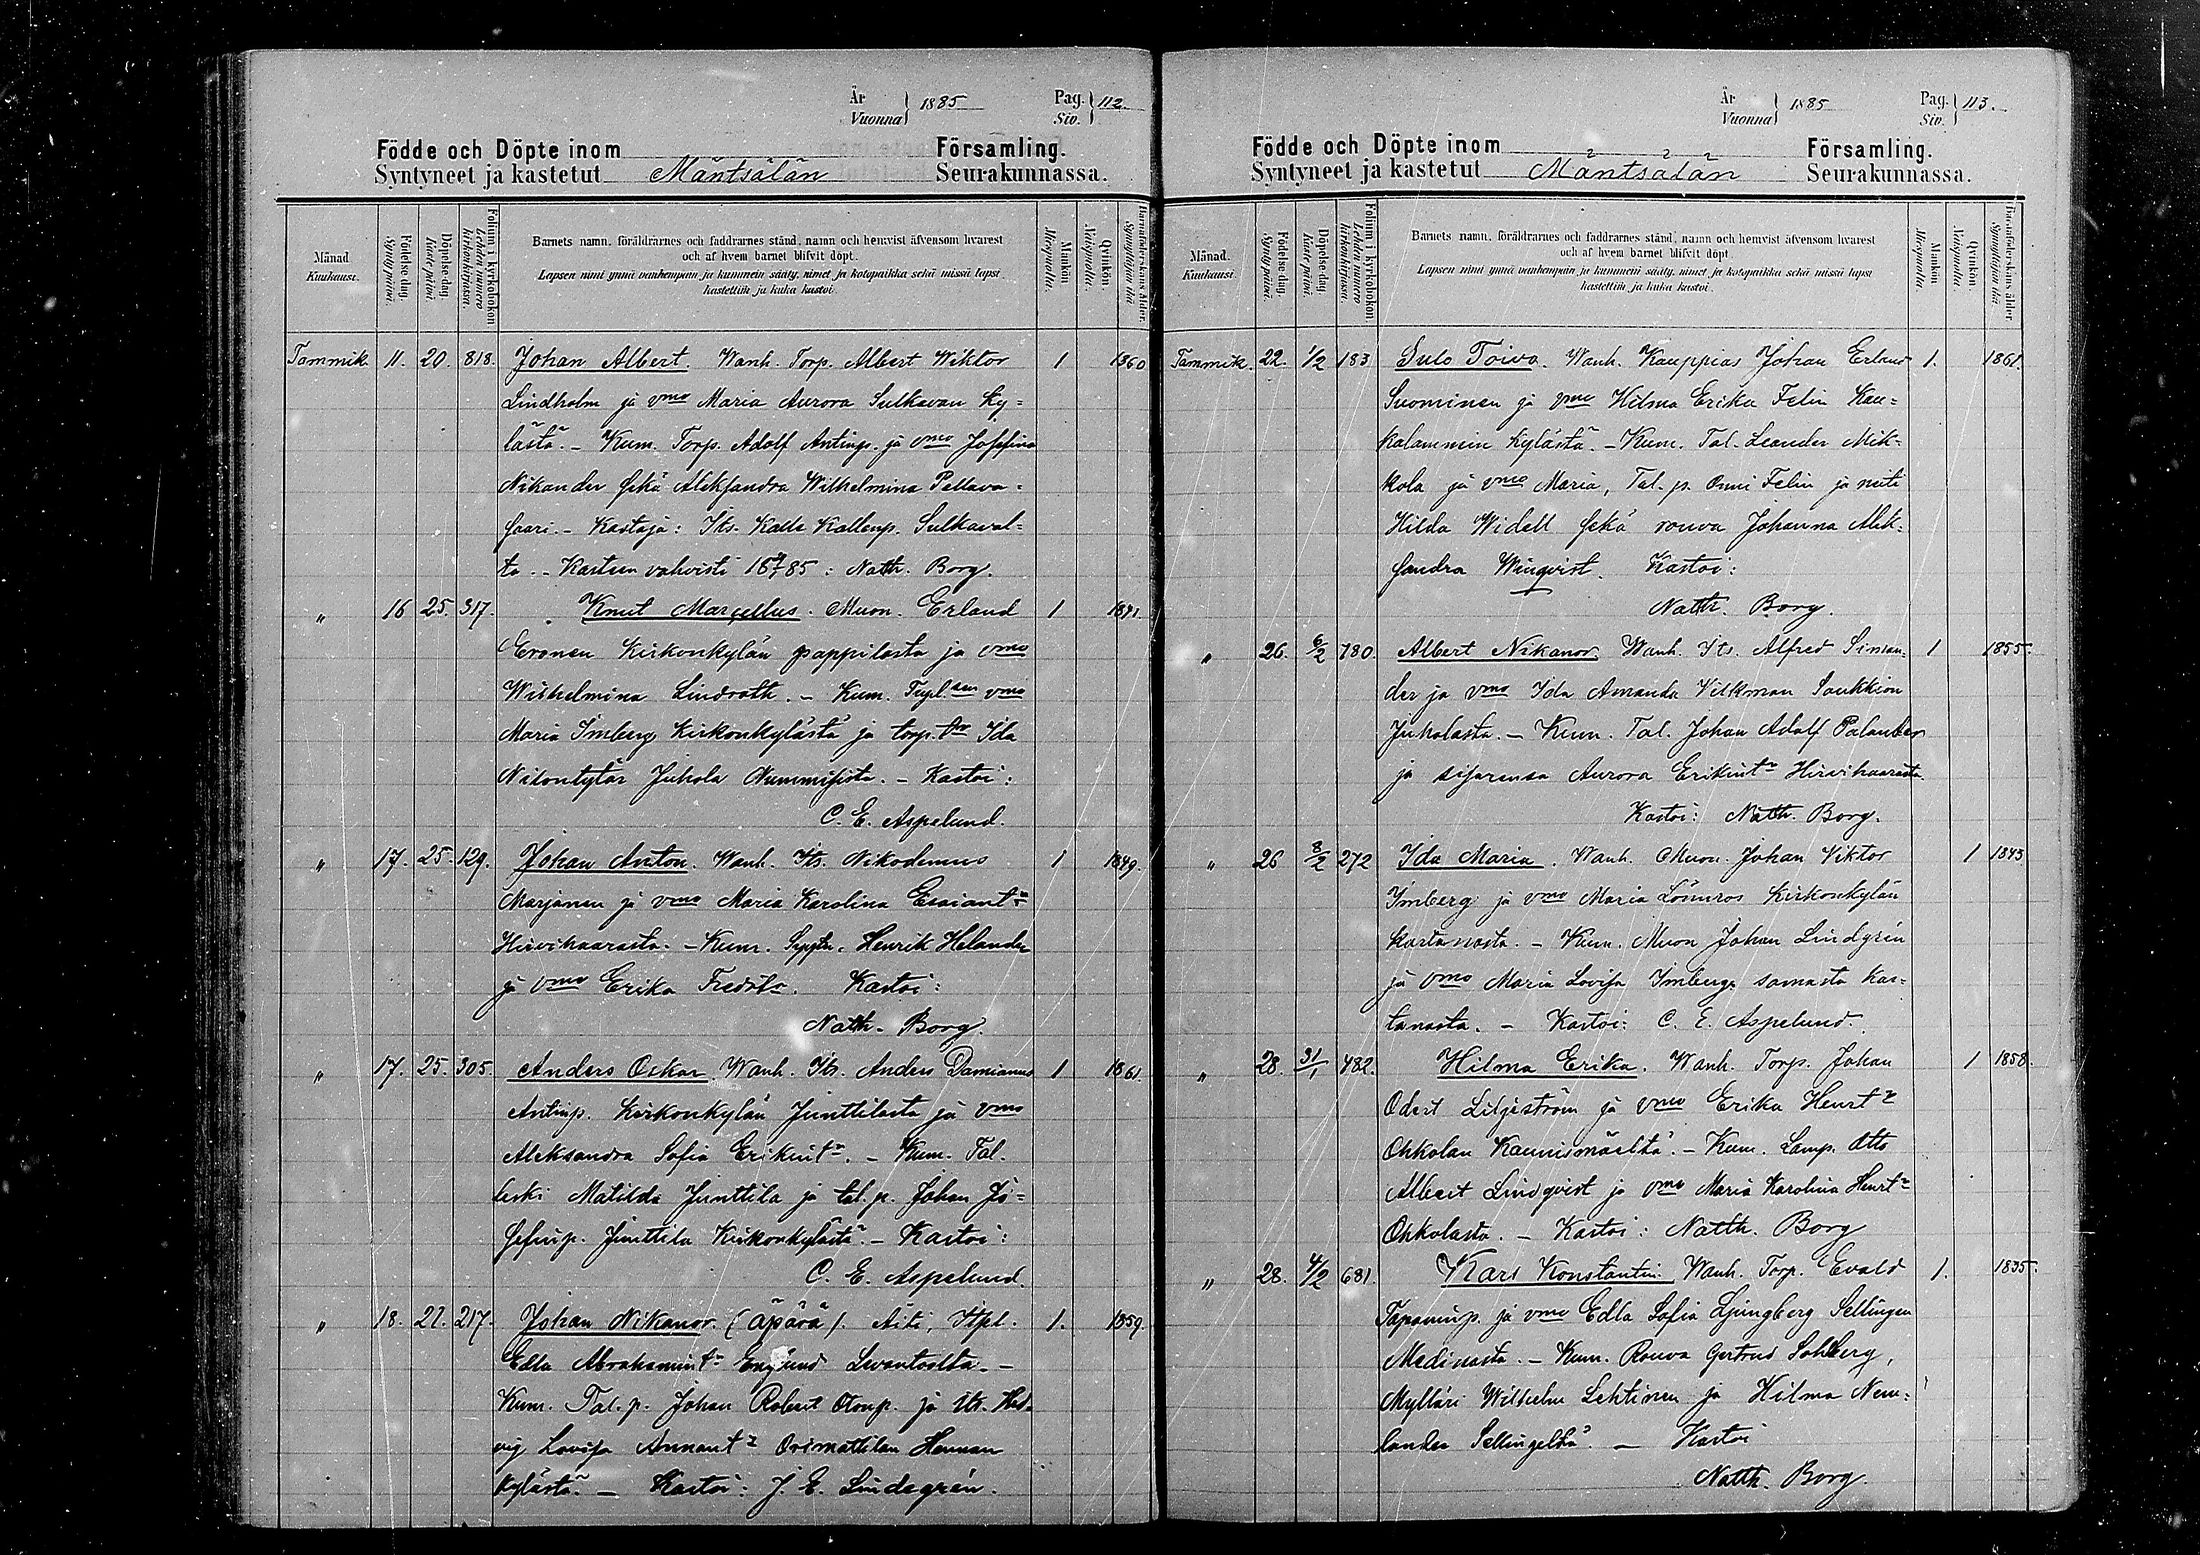 År
Vuonna } 1885
Pag.
Siv. } 112.
Födde och Döpte inom
Syntyneet ja kastetut Mäntsälän
Församling.
Seurakunnassa.
Månad.
Kuukausi.
Födelse-dag.
Syntymäpäivä.
Döpelse-dag.
Kaste-päivä.
Folium i kyrkoboken
Lehden numero kirkonkirjassa.
Barnets namn, föräldrarnes och faddrarnes stånd, namn och hemvist äfvensom hvarest
och af hvem barnet blifvit döpt.
Lapsen nimi ynnä vanhempain ja kummein sääty, nimet ja kotopaikka sekä missä lapsi
kastettiin ja kuka kastoi.
Mankön.
Miespuolta.
Qvinkön.
Vaimopuolta.
Barnaföderskans ålder.
Synnyttäjän ikä
Tammik. 11. 20. 818. Johan Albert. Wanh. Torp. Albert Wiktor 1 1860
Lindholm ja vmo Maria Aurora Sulkavan ky=
lästä. – Kum. Torp. Adolf Antinp. ja vmo Josefina
Nikander sekä Aleksandra Wilhelmina Pellava=
saari. – Kastaja: Its. Kalle Kallenp. Sulkaval=
ta. – Kasteen vahvisti 85: Nath. Borg.
„ 16 25. 317. Knut Marcellus. Muon. Erland 1 1841.
Eronen Kirkonkylän pappilasta ja vmo
Wilhelmina Lindroth. – Kum. vmo
Maria Imberg Kirkonkylästä ja torp. tr Ida
Juhola Nummisista. – Kastoi:
C. E. Aspelund.
„ 17. 25. 129. Johan Anton. Wanh. Its. Nikodemus 1 1849.
Marjanen ja vmo Maria Karolina Esaiant:
Hirvihaarasta. – Kum. Henrik Helander
ja vmo Erika Kastoi:
Nath. Borg.
„ 17. 25. 305. Anders Oskar. Wanh. Its. Anders Damianus 1 1861.
Antinp. Kirkonkylän Junttilasta ja vmo
Aleksandra Sofia Erikint:. – Kum. Tal.
leski Matilda Junttila ja tal. p. Johan Jo=
sefinp. Junttila Kirkonkylästä. – Kastoi:
C. E. Aspelund.
„ 18. 217. Johan Nikanor. (äpärä). Äiti, Itpl. 1. 1859.
Edla Abrahamint: Englund Levantoolta. –
Kum. Tal. p. Johan Robert Ottonp. ja its. Hed=
vig Lovisa Annant: Orimattilan Hennan
kylästä. – Kastoi: J. E. Lindegrén.
År
Vuonna } 1885
Pag.
Siv. } 113.
Födde och Döpte inom
Syntyneet ja kastetut Mäntsälän
Församling.
Seurakunnassa.
Månad.
Kuukausi.
Födelse-dag.
Syntymäpäivä.
Döpelse-dag.
Kaste-päivä.
Folium i kyrkoboken.
Lehden numero kirkonkirjassa.
Barnets namn, föräldrarnes och faddrarnes stånd, namn och hemvist äfvensom hvarest
och af hvem barnet blifvit döpt.
Lapsen nimi ynnä vanhempain ja kummein sääty, nimet ja kotopaikka sekä missä lapsi
kastettiin ja kuka kastoi.
Mankön.
Miespuolta.
Qvinkön.
Vaimopuolta.
Barnaföderskans ålder.
Synnyttäjän ikä
Tammik. 22. 1/2 183. Sulo Toivo. Wanh. Kauppias Johan Erland 1. 1861.
Suominen ja vmo Hilma Erika Felin Kau=
kalammin kylästä. – Kum. Tal. Leander Mik=
kola ja vmo Maria, Tal. p. Onni Felin ja neiti
Hilda Widell sekä rouva Johanna Alek=
sandra Winqvist. Kastoi:
Nath. Borg.
„ 26. 6/2 780. Albert Nikanor. Wanh. Its. Alfred Siman= 1 1855.
der ja vmo Ida Amanda Vilkman Saukkion
Juholasta. – Kum. Tal. Johan Adolf Palander
ja sisarensa Aurora Erikint: Hirvihaarasta.
Kastoi: Nath. Borg.
„ 26 8/2 272 Ida Maria. Wanh. Muon. Johan Viktor 1 1843.
Imberg ja vmo Maria Lönnros Kirkonkylän
kartanosta. – Kum. Muon Johan Lindgrén
ja vmo Maria Lovisa Imberg samasta kar=
tanosta. – Kastoi: C. E. Aspelund.
„ 28. 31/1 482. Hilma Erika. Wanh. Torp. Johan 1 1858.
Odert Liljeström ja vmo Erika Henrt:
Ohkolan Kaunismäeltä. – Kum. Lamp. Otto
Albert Lindqvist ja vmo Maria Karolina Henrt:
Ohkolasta. – Kastoi: Natth. Borg
„ 28. 4/2 681. Karl Konstantin. Wanh. Torp. Evald 1. 1835.
Tapaninp. ja vmo Edla Sofia Ljungberg Sellingen
Medinasta. – Kum. Rouva Gertrud Sohlberg,
Mylläri Wilhelm Lehtinen ja Hilma Nem=
lander Sellingeltä. – Kastoi
Natth. Borg.